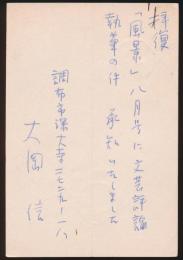 拝復
「風景」八月号に文芸評論
執筆の件 承知いたしました
調布市深大寺二七二九ー一八
大岡 信